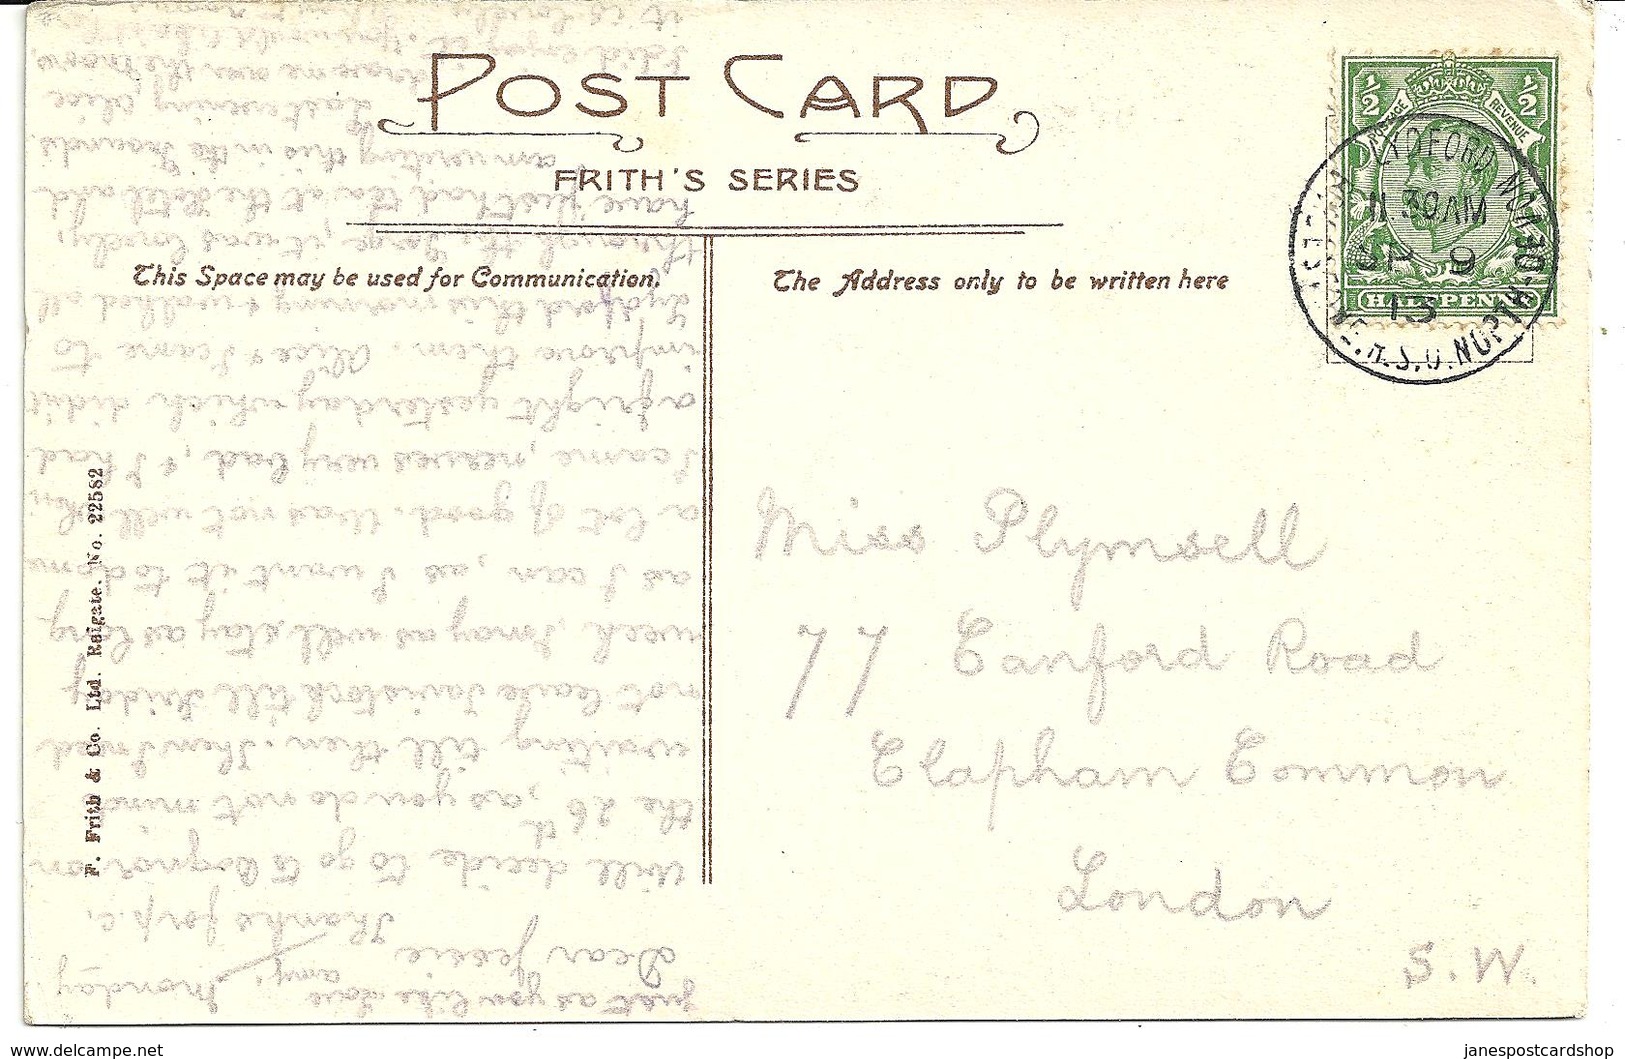 POST CARD
FRITH'S SERIES
This Space may be used for Communication.
The Address only to be written here
½ ½
POSTAGE REVENUE
HALFPENNY
LYDFORD
11.30AM
SP 9
13
R.S.O. NORTH
F. Frith & Co. Ltd. Reigate. No. 22582
Miss Plymsell
77 Canford Road
Clapham Common
London
S.W.
Monday.
Dear Jessie
Thanks for p.c.
Will decide to go to Bognor on
the 26th, as you do not mind
waiting till then. Then I need
not leave Tavistock till Friday
week, I may as well stay as long
as I can, as I want it to do me
a lot of good. Was not well when
I came, nerves very bad, & I had
a fright yesterday which didn't
improve them. Alice & I came to
Lydford this morning & walked all
through the Gorge, it was lovely.
have just had tea at the Hotel and
am writing this in the Grounds.
Last evening Alice
drove me over the moor,
I did enjoy it. You would like it
it is lovely
just as you like. Love
Amy.
www.delcampe.net
janespostcardshop